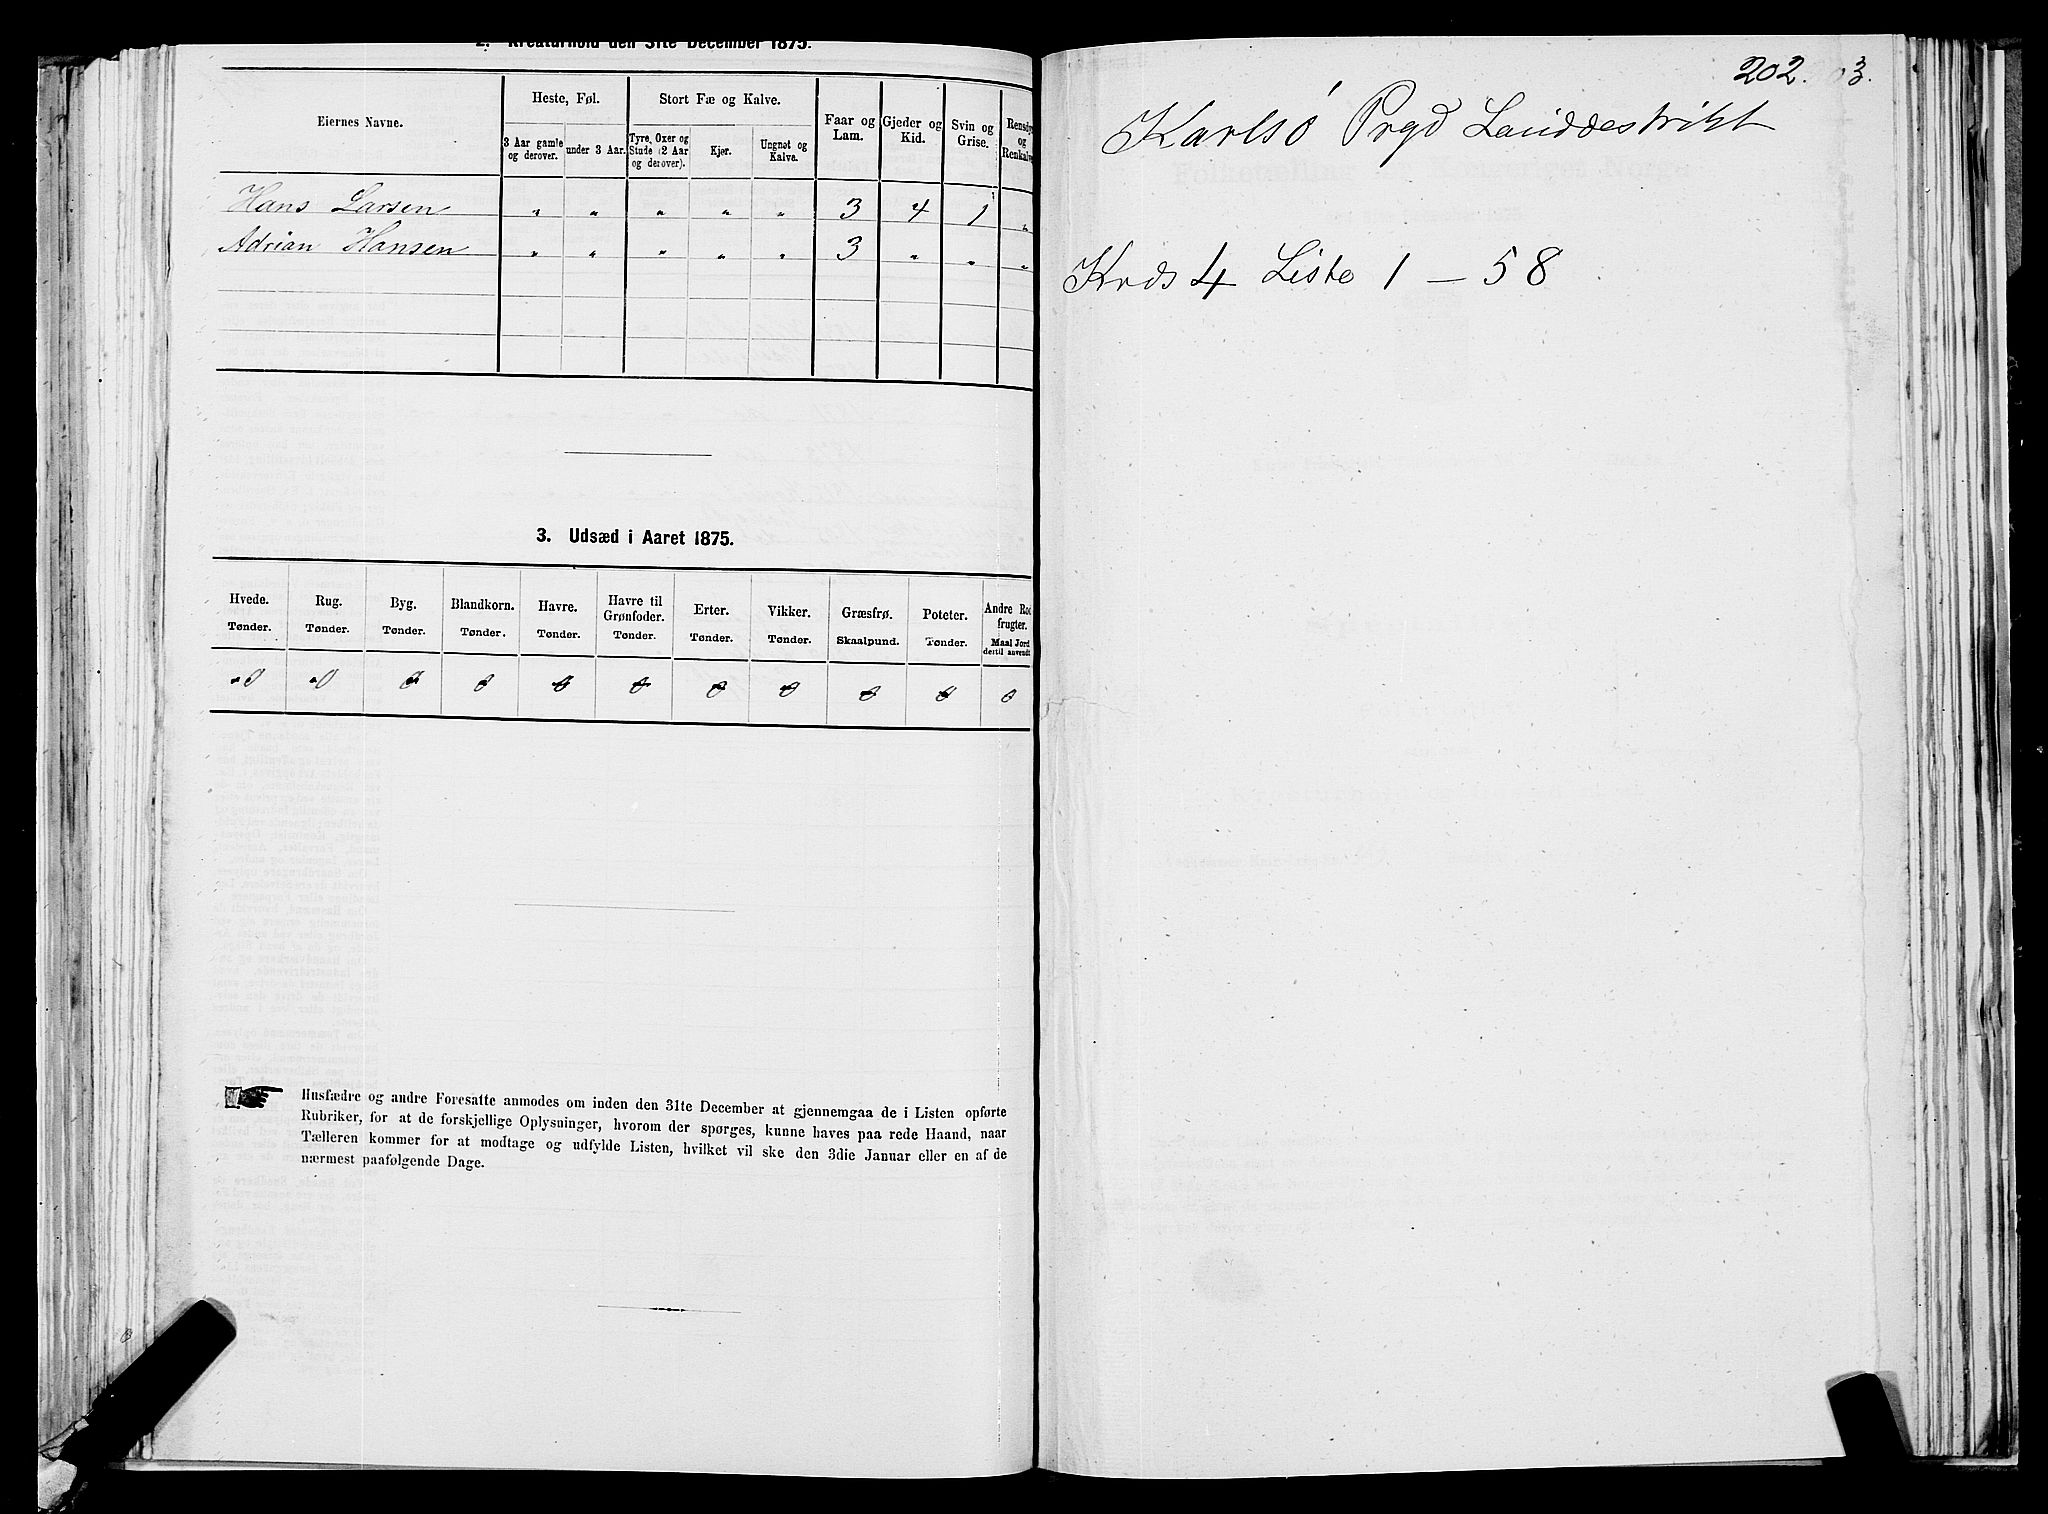 2. Kreaturhold den 31te December 1875.
Eiernes Navne. Heste, Føl. Stort Fæ og Kalve. Faar og Lam. Gjeder og Kid. Svin og Grise. Rensdyr og Renkalve
3 Aar gamle og derover. under 3 Aar. Tyre, Oxer og Stude (2 Aar og derover). Kjør. Ungnøt og Kalve.
Hans Larsen " " " " " 3 4 1 "
Adrian Hansen " " " " " 3 " " "
3. Udsæd i Aaret 1875.
Hvede. Rug. Byg. Blandkorn. Havre. Havre til Grønfoder. Erter. Vikker. Græsfrø. Poteter. Andre Rodfrugter.
Tønder. Tønder. Tønder. Tønder. Tønder. Tønder. Tønder. Tønder. Skaalpund. Tønder. Maal Jord dertil anvendt
0 0 0 0 0 0 0 0 0 0 0
Husfædre og andre Foresatte anmodes om inden den 31te December at gjennemgaa de i Listen opførte
Rubriker, for at de forskjellige Oplysninger, hvorom der spørges, kunne haves paa rede Haand, naar
Tælleren kommer for at modtage og udfylde Listen, hvilket vil ske den 3die Januar eller en af de
nærmest paafølgende Dage.
202. 3.
Karlsö Prgd Landdestrikt
Krds 4 Liste 1 — 58